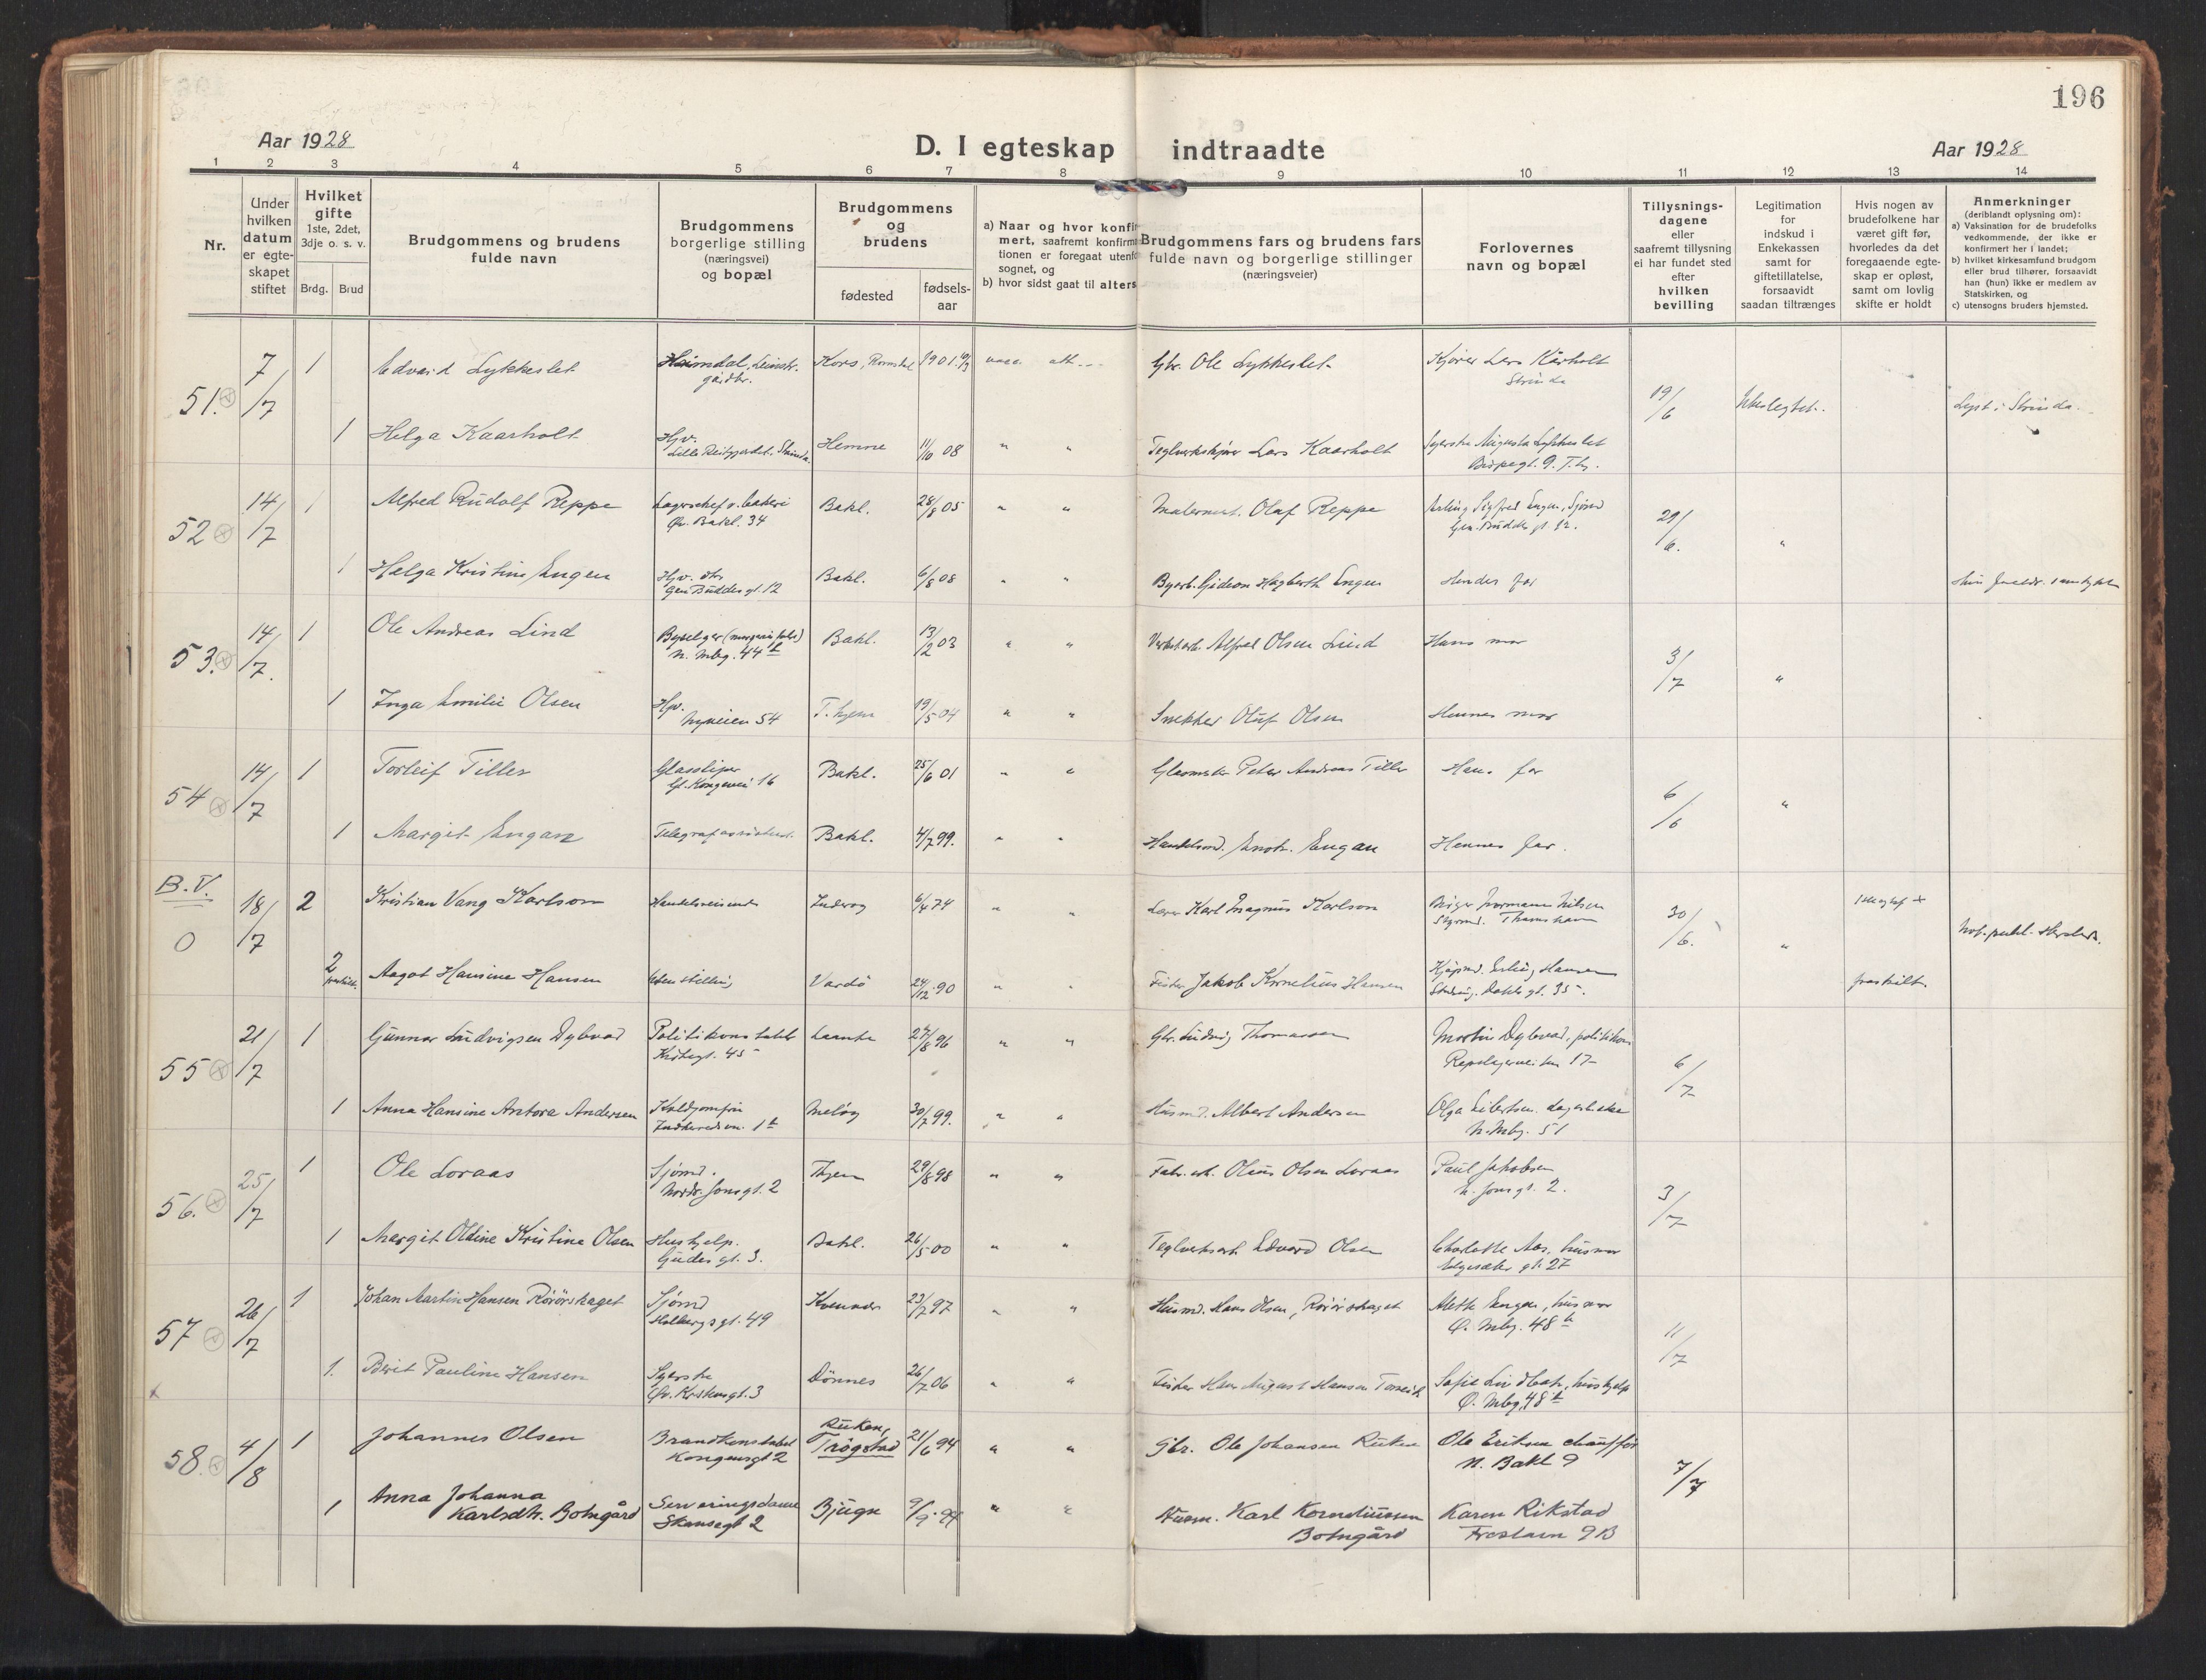 196
Aar 1928
D. I egteskap indtraadte
Aar 1928
1 2 3 4 5 6 7 8 9 10 11 12 13 14
Nr.
Under hvilken datum er egteskapet stiftet
Hvilket gifte 1ste, 2det, 3dje o. s. v.
Brdg. Brud
Brudgommens og brudens fulde navn
Brudgommens borgerlige stilling (næringsvei) og bopæl
Brudgommens og brudens
fødested
fødsels-aar
a) Naar og hvor konfirmert, saafremt konfirmationen er foregaat utenfor sognet, og
b) hvor sidst gaat til alters
Brudgommens fars og brudens fars fulde navn og borgerlige stillinger (næringsveier)
Forlovernes navn og bopæl
Tillysningsdagene eller saafremt tillysning ei har fundet sted efter hvilken bevilling
Legitimation for indskud i Enkekassen samt for giftetillatelse, forsaavidt saadan tiltrænges
Hvis nogen av brudefolkene har været gift før, hvorledes da det foregaaende egteskap er opløst, samt om lovlig skifte er holdt
Anmerkninger (deriblandt oplysning om):
a) Vaksination for de brudefolks vedkommende, der ikke er konfirmert her i landet;
b) hvilket kirkesamfund brudgom eller brud tilhører, forsaavidt han (hun) ikke er medlem av Statskirken, og
c) utensogns bruders hjemsted.
51. 7/7 1 Edvard Lykkeslet Heimdal, Leinstr. gaardbr. Kors, Romsdal 1901 Gbr. Ole Lykkeslet Kjører Lars Kårholt Strinda 19/6 Lyst i Strinda.
1 Helga Kaarholt Hjv. Hemne 11/10 08 " " Teglverkskjører Lars Kaarholt Syerske Augusta Lykkeslet Bispegt. 9. T.hj.
52 14/7 1 Alfred Rudolf Reppe Lagerchef v. bakeri Øv. Bakl. 34 Bakl. 28/8 05 " " Malermest. Olaf Reppe Erling Sigfred Engen, Sjømd Gen. Buddes gt. 12. 29/6. "
1 Helga Kristine Engen Hjv. dtr Gen Buddes gt. 12 Bakl. 6/8 08 " " Hagberth Engen Hendes far
53. 14/7. 1 Ole Andreas Lind N. Mbg. 44 b Bakl. 13/2 03 " " Alfred Olsen Lind Hans mor 3/7 "
1 Inga Emilie Olsen Hjv. Nyveien 54 T.hjem 19/5 04 " " Snekker Oluf Olsen Hennes mor
54 14/7 1 Torleif Tiller Glassliper Gl. Kongevei 16 Bakl. 25/6 01 " " Peter Andreas Tiller Hans far 6/6 "
1 Margit Engan Telegrafassistent. Bakl. 4/7 99. " " Handelsmd. Enok. Engan Hennes far.
B.V. 0 18/7 2 Kristian Vang Karlson Handelsreisende Inderøy 6/4 74 " " Lærer Karl Magnus Karlson Birger Normann Nilsen Thamshavn 30/6. "
2 fraskilt. Aagot Hansine Hansen uten stilling Vardö 24/12 90 " " Fisker Jakob Kornelius Hansen Kjøpmd. Erling Hansen gt. 35. fraskilt.
55 21/7 1 Gunnar Ludvigsen Dybvad Politikonstabel Kirkegt. 45 27/8 96 " " Gbr. Ludvig Thomassen Martin Dybvad, politikon Repslagerveiten 17 6/7
1 Anna Hansine Antora Andersen Koldjomfru Indherredsvn. 1 b Meløy 30/7 99. " " Husmd. Albert Andersen N. Mbg. 51
56. 25/7 1 Ole Loraas Sjømd. Nordr. Jonsgt. 2 Thjem 29/8 98 " " Fabr. arb. Olaus Olsen Loraas Paul Jakobsen N. Jonsgt. 2. 3/7
1 Margit Oldine Kristine Olsen Hushjelp. Gudes gt. 3. Bakl. 26/5 00 " " Teglverksarb Edvard Olsen Charlotte Aas, husmor gt. 27
57 26/7 1 Johan Martin Hansen Rörörskaget Sjømd Holbergs gt. 49 Kvenvær 23/2 97 " " Husmd. Hans Olsen, Rörörskaget Mette Engen, husmor Ø. Mbg. 48 b 11/7
1. Berit Pauline Hansen Syerske Øv. Kristensgt. 3 Dönnes 26/7 06 " " Fisker Hans August Hansen Sofie Lindbak, hushjelp Ø. Mbg. 48 b
58. 4/8 1 Johannes Olsen Brandkonstabel Kongensgt 2 Ruken, Trøgstad 21/6 94 " " Gbr. Ole Johansen Ruken Ole Eriksen chauffør N. Bakl 9 7/7
1 Anna Johanna Karlsdtr. Botngård Serveringsdame Skansegt 2 Bjugn 9/9. 94 " " Husm. Karl Korneliussen Botngård Karen Rikstad Frostavn 9B